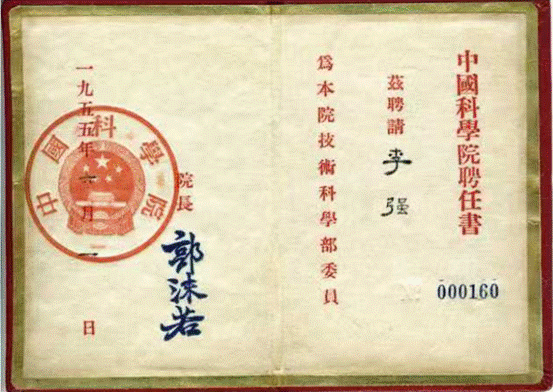 中國科學院聘任書
茲聘請 李强
爲本院技術科學部委員
000160
院長 郭沫若
一九五五年六月一日
中國科學院